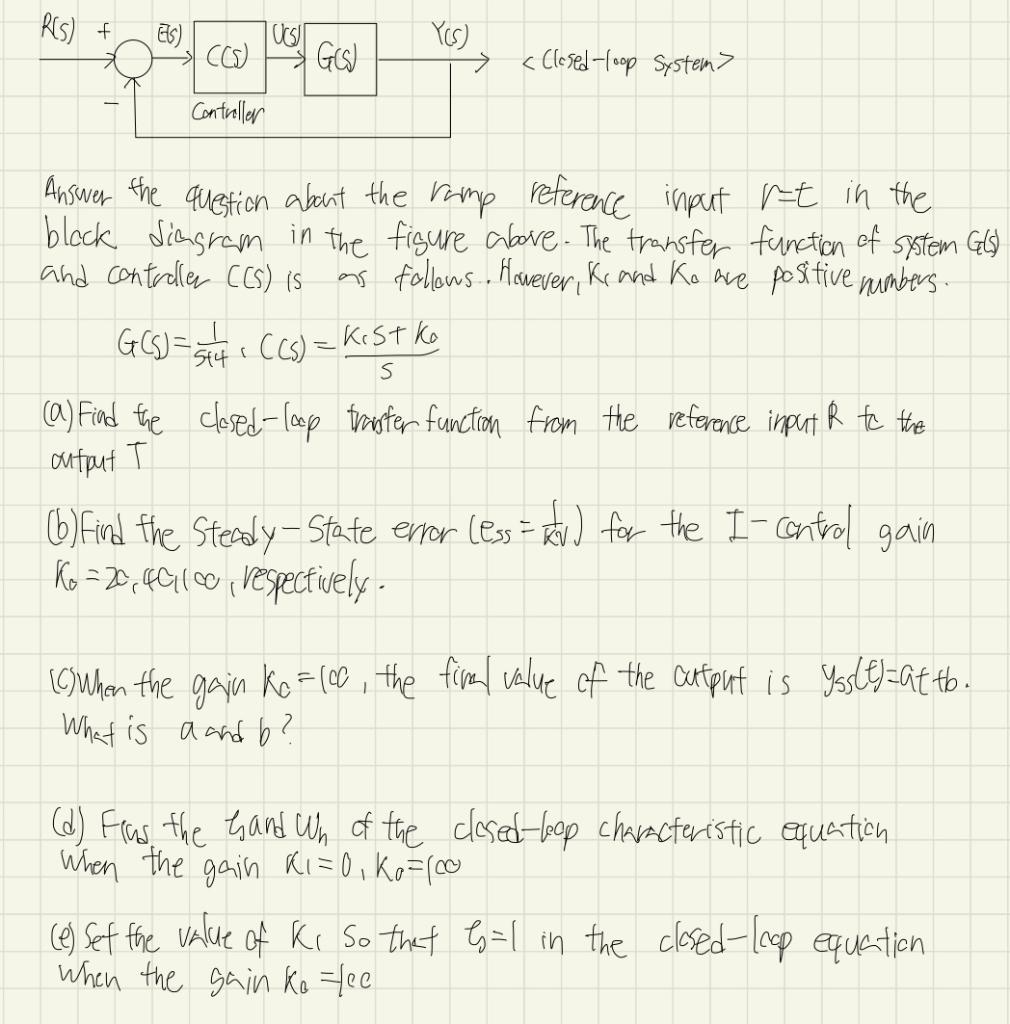 R(s) + E(s) C(s) U(s) G(s) Y(s) <Closed-loop System>
- Controller
Answer the question about the ramp reference input r=t in the
block diagram in the figure above. The transfer function of system G(s)
and controller C(s) is as follows. However, K1 and K0 are positive numbers.
G(s) = 1/(s+4), C(s) = (K1s + K0)/s
(a) Find the closed-loop transfer function from the reference input R to the
output T
(b) Find the Steady-State error (ess = 1/Kv) for the I-control gain
K0 = 20, 40, 100, respectively.
(c) When the gain K0 = 100, the final value of the output is yss(t)=at+b.
What is a and b?
(d) Find the ζ and Wn of the closed-loop characteristic equation
when the gain K1=0, K0=100
(e) Set the value of K1 so that ζ=1 in the closed-loop equation
when the gain K0=100